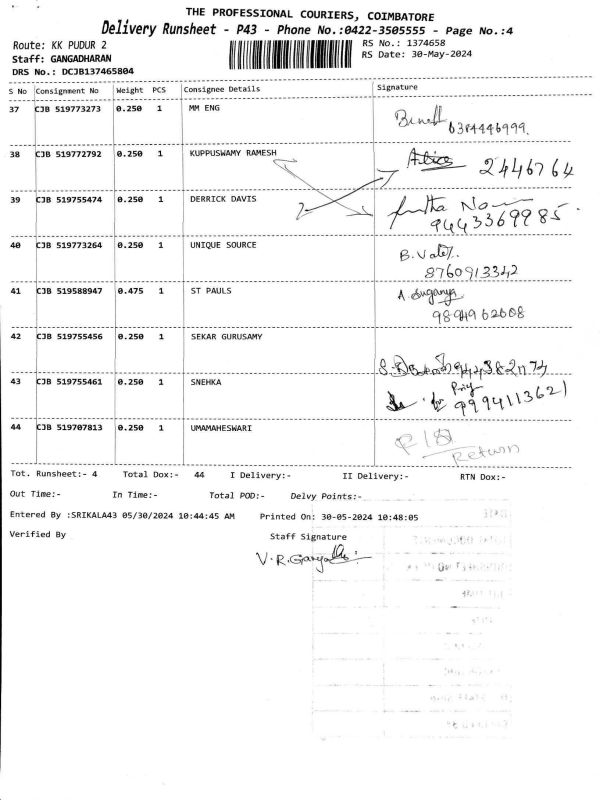 THE PROFESSIONAL COURIERS, COIMBATORE
Delivery Runsheet - P43 - Phone No.:0422-3505555 - Page No.:4
Route: KK PUDUR 2 RS No.: 1374658
Staff: GANGADHARAN RS Date: 30-May-2024
DRS No.: DCJB137465804
S No Consignment No Weight PCS Consignee Details Signature
37 CJB 519773273 0.250 1 MM ENG
6384446999.
38 CJB 519772792 0.250 1 KUPPUSWAMY RAMESH
2446764
39 CJB 519755474 0.250 1 DERRICK DAVIS
9443369985
40 CJB 519773264 0.250 1 UNIQUE SOURCE
8760913342
41 CJB 519588947 0.475 1 ST PAULS A. Suganya
42 CJB 519755456 0.250 1 SEKAR GURUSAMY
43 CJB 519755461 0.250 1 SNEHKA Priy
9994113621
44 CJB 519707813 0.250 1 UMAMAHESWARI
Return
Tot. Runsheet:- 4 Total Dox:- 44 I Delivery:- II Delivery:- RTN Dox:-
Out Time:- In Time:- Total POD:- Delvy Points:-
Entered By :SRIKALA43 05/30/2024 10:44:45 AM Printed On: 30-05-2024 10:48:05
Verified By Staff Signature